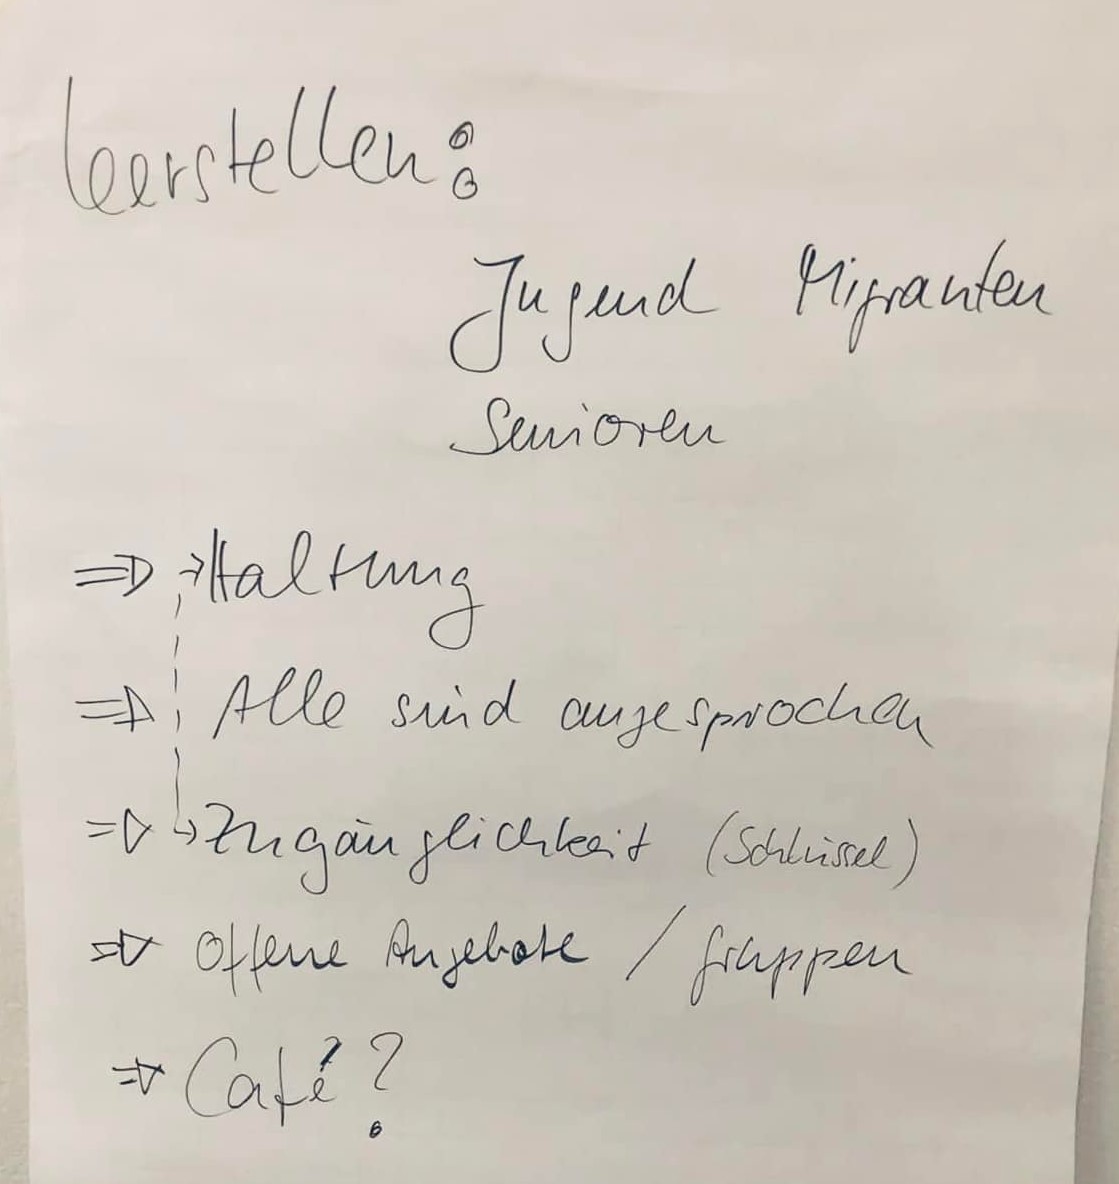 Leerstellen:
Jugend Migranten
Senioren
⇒ → Haltung
⇒ Alle sind angesprochen
⇒ ↳ Zugänglichkeit (Schlüssel)
⇒ Offene Angebote / Gruppen
⇒ Café?